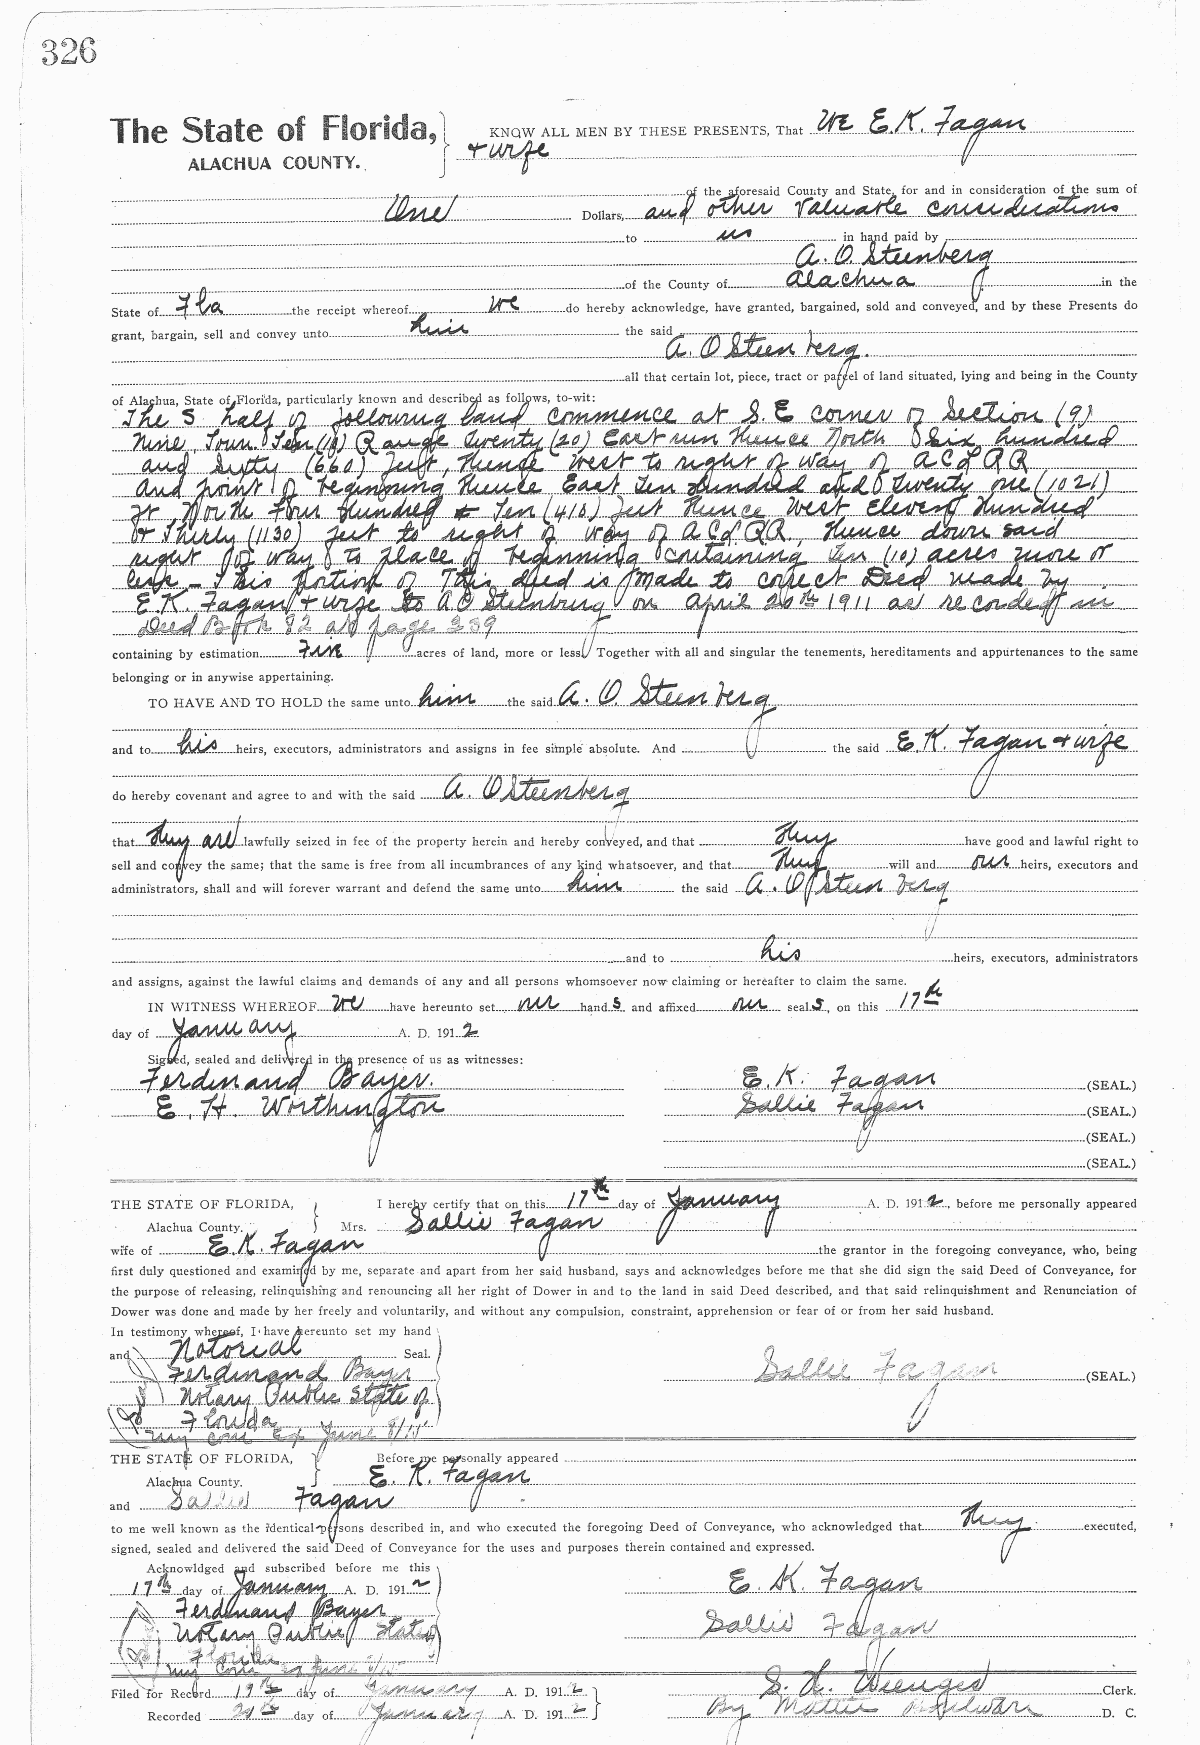 326
The State of Florida, KNOW ALL MEN BY THESE PRESENTS, That We E.K. Fagan
ALACHUA COUNTY. + wife
of the aforesaid County and State, for and in consideration of the sum of
One Dollars, and other valuable considerations
to us in hand paid by
A. O. Steenberg
of the County of Alachua in the
State of Fla the receipt whereof we do hereby acknowledge, have granted, bargained, sold and conveyed, and by these Presents do
grant, bargain, sell and convey unto him the said
A. O Steenberg.
all that certain lot, piece, tract or parcel of land situated, lying and being in the County
of Alachua, State of Florida, particularly known and described as follows, to-wit:
The S half of following land commence at S. E corner of Section (9)
Nine Town Ten (10) Range twenty (20) East run thence North Six hundred
and Sixty (660) feet, thence West to right of way of A C L RR
and point of beginning thence East Ten Hundred and twenty one (1021)
ft North Four Hundred & Ten (410) feet thence West Eleven Hundred
& Thirty (1130) feet to right of Way of A C L RR, thence down said
right of way to place of beginning containing ten (10) acres more or
less - This portion of This deed is made to correct Deed made by
E.K. Fagan + wife to A O Steenberg on April 20th 1911 as recorded in
Deed Book 82 at page 339
containing by estimation Five acres of land, more or less. Together with all and singular the tenements, hereditaments and appurtenances to the same
belonging or in anywise appertaining.
TO HAVE AND TO HOLD the same unto him the said A. O. Steenberg
and to his heirs, executors, administrators and assigns in fee simple absolute. And the said E.K. Fagan + wife
do hereby covenant and agree to and with the said A. O Steenberg
that they are lawfully seized in fee of the property herein and hereby conveyed, and that they have good and lawful right to
sell and convey the same; that the same is free from all incumbrances of any kind whatsoever, and that they will and our heirs, executors and
administrators, shall and will forever warrant and defend the same unto him the said A. O Steenberg
and to his heirs, executors, administrators
and assigns, against the lawful claims and demands of any and all persons whomsoever now claiming or hereafter to claim the same.
IN WITNESS WHEREOF We have hereunto set our hands and affixed our seals, on this 17th
day of January A. D. 1912
Signed, sealed and delivered in the presence of us as witnesses:
Ferdinand Bayer. E. K. Fagan (SEAL.)
E. H. Worthington Sallie Fagan (SEAL.)
(SEAL.)
(SEAL.)
THE STATE OF FLORIDA, I hereby certify that on this 17th day of January A. D. 1912, before me personally appeared
Alachua County. Mrs. Sallie Fagan
wife of E. K. Fagan the grantor in the foregoing conveyance, who, being
first duly questioned and examined by me, separate and apart from her said husband, says and acknowledges before me that she did sign the said Deed of Conveyance, for
the purpose of releasing, relinquishing and renouncing all her right of Dower in and to the land in said Deed described, and that said relinquishment and Renunciation of
Dower was done and made by her freely and voluntarily, and without any compulsion, constraint, apprehension or fear of or from her said husband.
In testimony whereof, I have hereunto set my hand
and Notorial Seal.
Ferdinand Bayer Sallie Fagan (SEAL.)
Notary Public State of
Florida
My Com Ex June 8/15
THE STATE OF FLORIDA, Before me personally appeared
Alachua County. E. K. Fagan
and Sallie Fagan
to me well known as the identical persons described in, and who executed the foregoing Deed of Conveyance, who acknowledged that they executed,
signed, sealed and delivered the said Deed of Conveyance for the uses and purposes therein contained and expressed.
Acknowldged and subscribed before me this
17th day of January A. D. 1912 E. K. Fagan
Ferdinand Bayer
Notary Public State of Sallie Fagan
Florida
My Com June 8/15
Filed for Record 19th day of January A. D. 1912 S. H. Wienges Clerk.
Recorded 20th day of January A. D. 1912 By Mattie D. C.